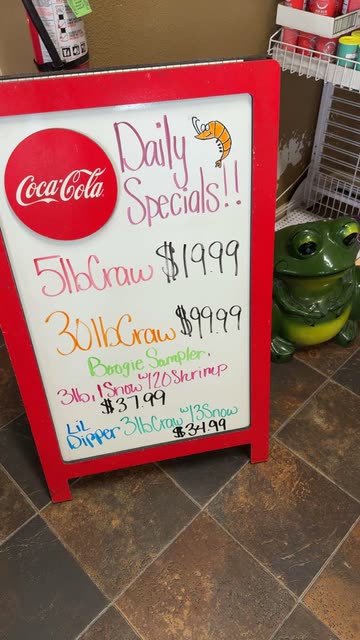 Coca-Cola
Daily
Specials!!
5lb Craw $19.99
30lb Craw $99.99
Boogie Sampler.
3lb, 1 Snow w/ 20 Shrimp
$37.99
Lil Dipper 3lb Craw w/ 3 Snow
$34.99